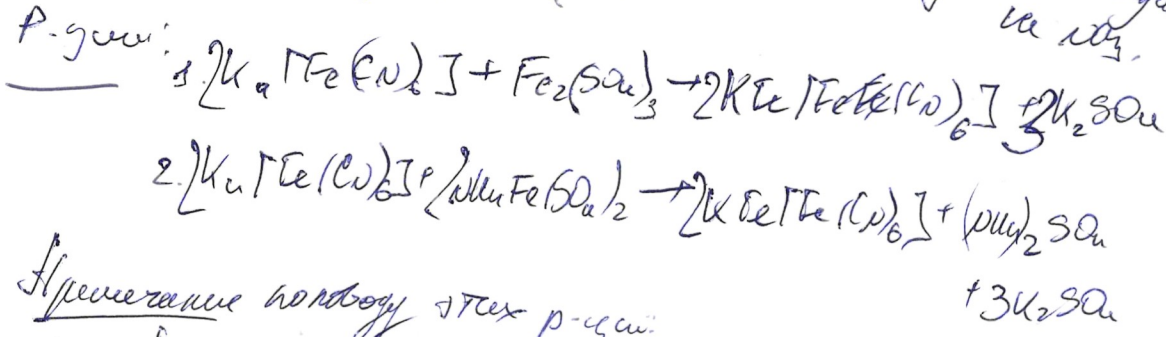 на
Р-ции:
1. 2K4[Fe(CN)6] + Fe2(SO4)3 → 2KFe[Fe(CN)6] + 3K2SO4
2. 2K4[Fe(CN)6] + 2NH4Fe(SO4)2 → 2KFe[Fe(CN)6] + (NH4)2SO4
+ 3K2SO4
Примечание по поводу этих р-ций: